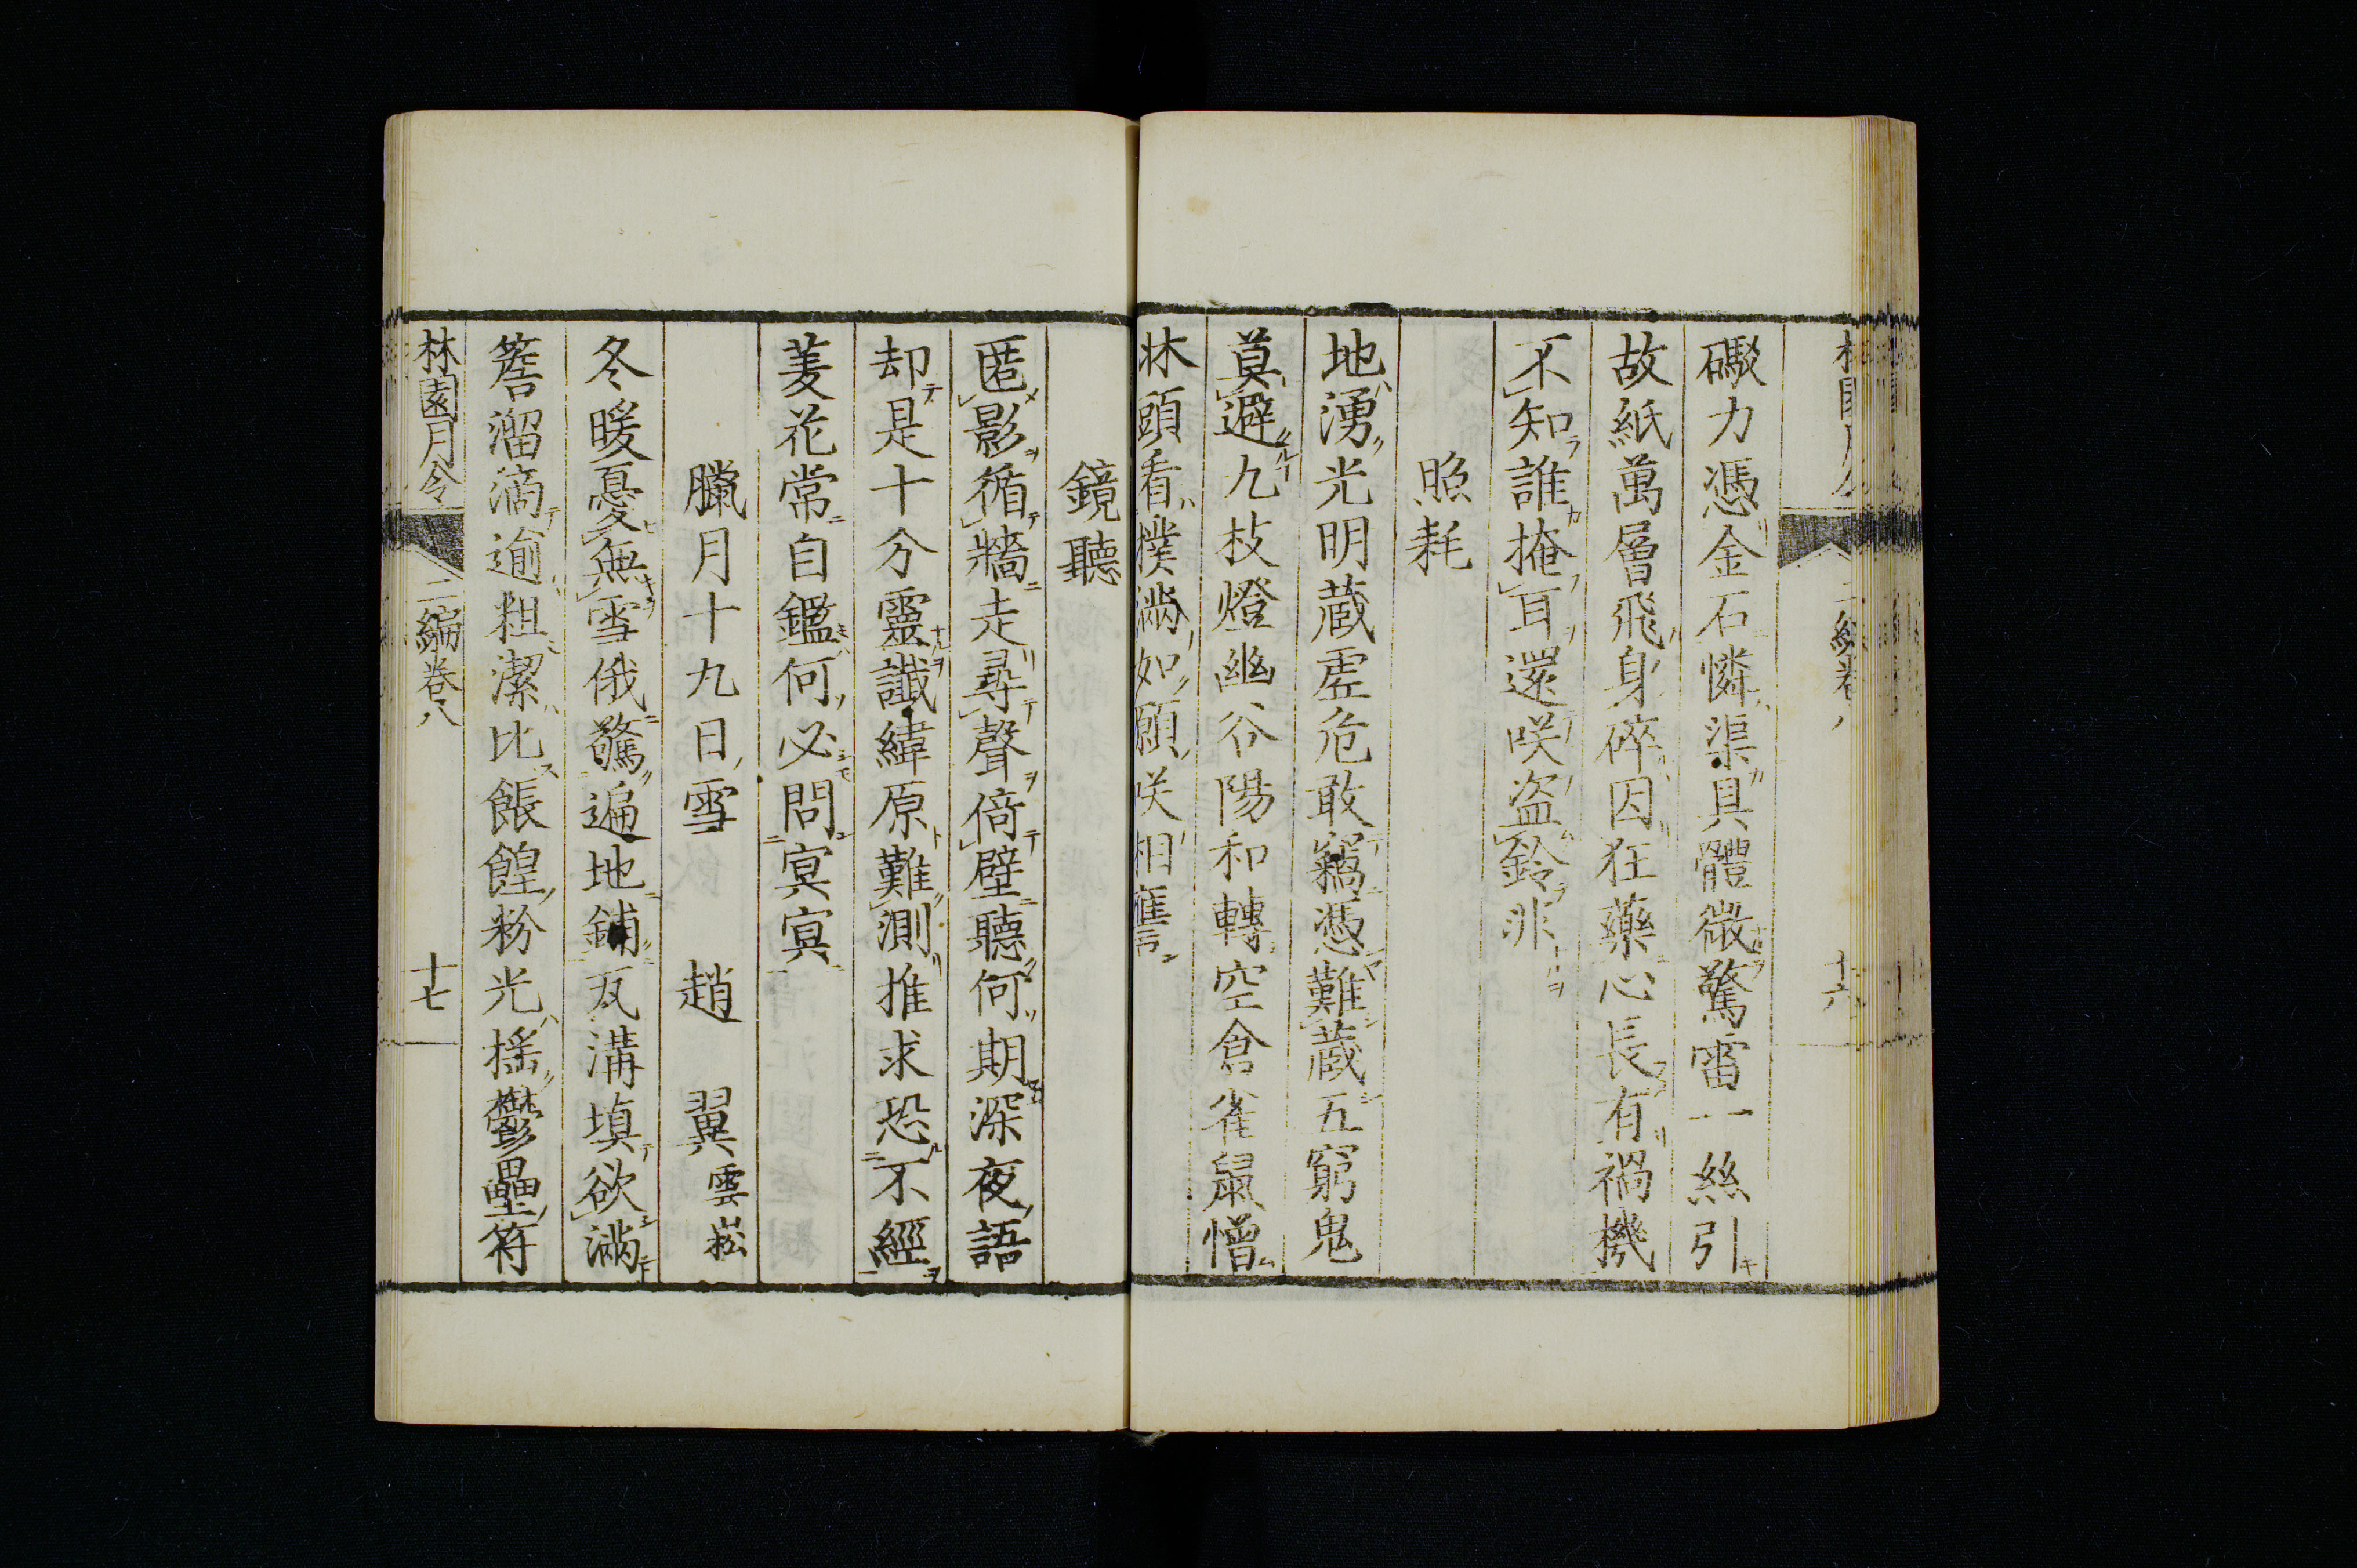 礮力憑金石憐渠具體微驚雷一絲引
故紙萬層飛身碎因狂藥心長有禍機
不知誰掩耳還咲盗鈴非
照耗
地湧光明藏虛危敢竊憑難藏五窮鬼
莫避九枝燈幽谷陽和轉空倉雀鼠憎
牀頭看撲滿如願咲相譍
鏡聽
匿影循牆走尋聲倚壁聽何期深夜語
却是十分靈讖緯原難測推求恐不經
菱花常自鑑何必問冥冥
臘月十九日雪 趙 翼雲崧
冬暖憂無雪俄驚遍地鋪瓦溝填欲滿
簷溜滴逾粗潔比餦餭粉光揺鬱壘符
林園月令 二編卷八 十七